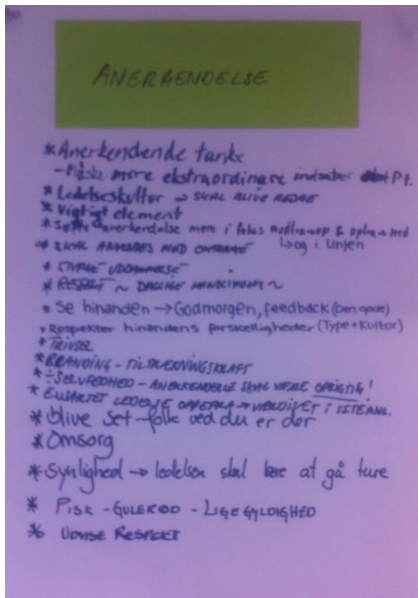 ANERKENDELSE
* Anerkendende tanke
- Måske mere ekstraordinære indsatser Pt.
* Ledelseskultur → SKAL BLIVE BEDRE
* Vigtigt element
* Sætte anerkendelse mere i fokus nedefra-op & oppefra-ned
↳ og i Linjen
* SKAL ANVENDES MED OMTANKE
* STYRKE UDDANNELSE
* RESPEKT ~ DAGLIGE ~
* Se hinanden → Godmorgen, feedback (Den gode)
* Respekter hinandens forskelligheder (Type + Kultur)
* TRIVSEL
* BRANDING - TILTRÆKNINGSKRAFT
* ÷ SELVFEDHED - ANERKENDELSE SKAL VÆRE OPRIGTIG!
* ENSARTET LEDELSE OPPEFRA → I
* blive set - folk ved du er der
* Omsorg
* Synlighed → ledelsen skal lære at gå ture
* PISK - GULEROD - LIGEGYLDIGHED
* UDVISE RESPEKT